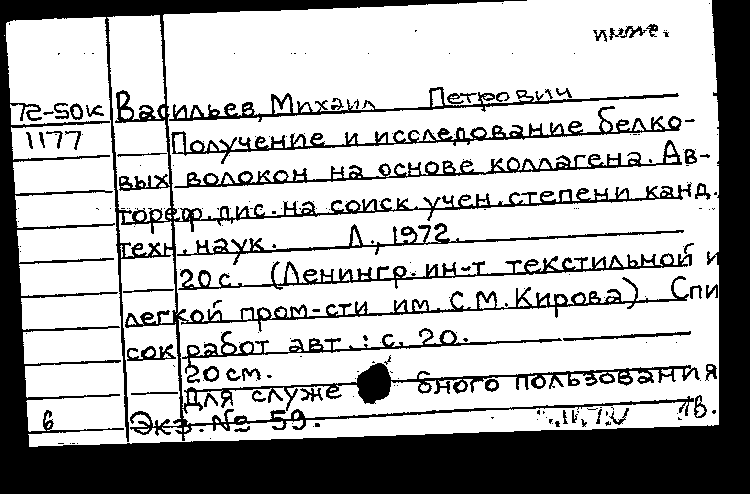 72-50к Васильев, Михаил Петрович
1177 Получение и исследование белко-
вых волокон на основе коллагена. Ав-
тореф. дис. на соиск. учен. степени канд.
техн. наук. Л., 1972.
20 с. (Ленингр. ин-т текстильной и
легкой пром-сти им. С.М. Кирова). Спи
сок работ авт.: с. 20.
20 см.
Для служе бного пользования
6 Экз. № 59. ПВ.